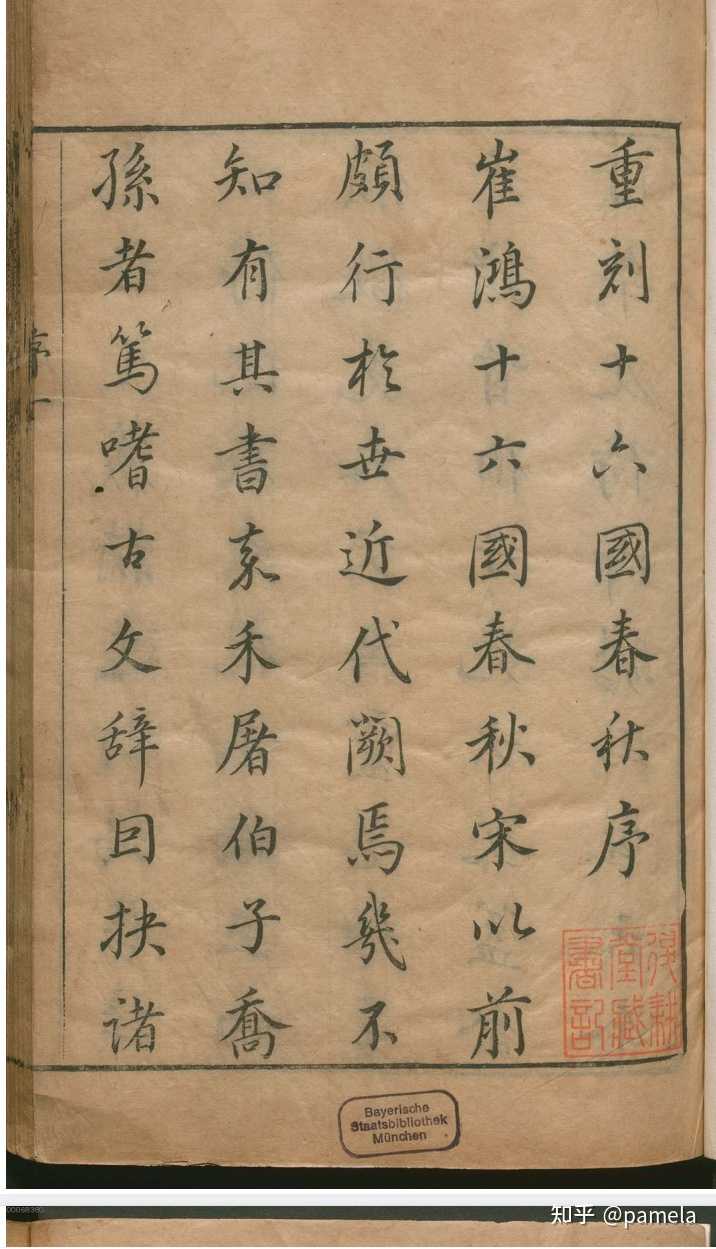 重刻十六國春秋序
崔鴻十六國春秋宋以前
頗行於世近代闕焉幾不
知有其書嘉禾屠伯子喬
孫者篤嗜古文辭因抉諸
序一
Bayerische
Staatsbibliothek
München
00068360
知乎 @pamela